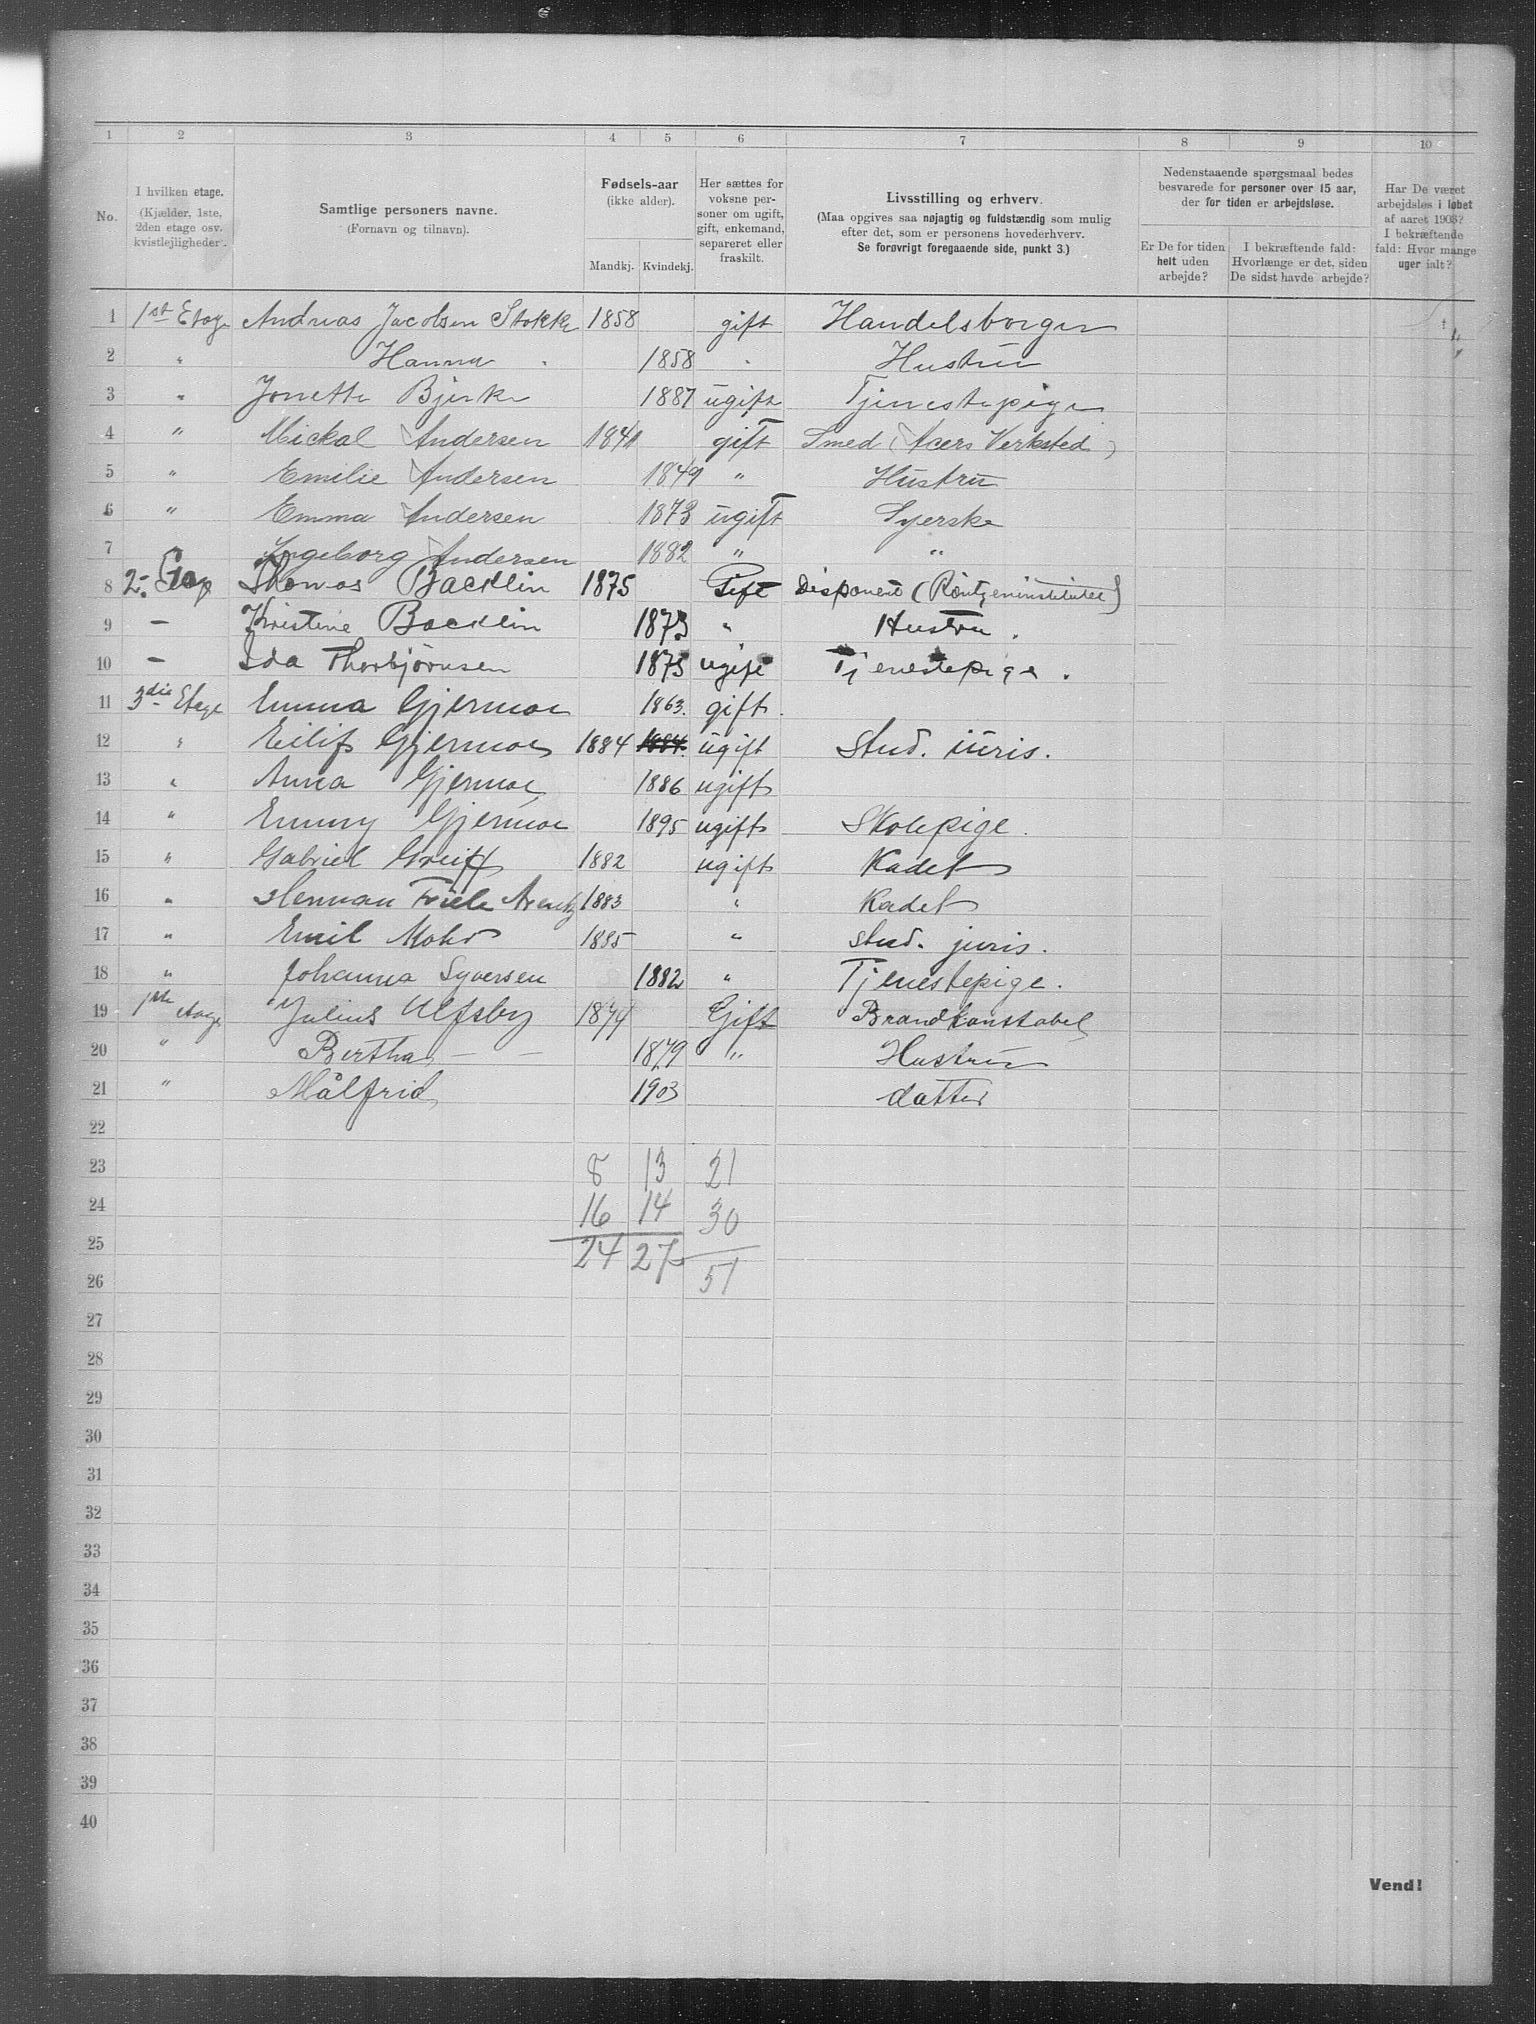 1 2 3 4 5 6 7 8 9 10
No.
I hvilken etage.
(Kjælder, 1ste, 2den etage osv. kvistleiligheder).
Samtlige personers navne.
(Fornavn og tilnavn).
Fødsels-aar
(ikke alder).
Mandkj. Kvindekj.
Her sættes for voksne personer om ugift, gift, enkemand, separeret eller fraskilt.
Livsstilling og erhverv.
(Maa opgives saa nøjagtig og fuldstændig som mulig efter det, som er personens hovederhverv.
Se forøvrigt foregaaende side, punkt 3.)
Nedenstaaende spørgsmaal bedes besvarede for personer over 15 aar, der for tiden er arbejdsløse.
Er De for tiden helt uden arbejde?
I bekræftende fald: Hvorlænge er det, siden De sidst havde arbejde?
Har De været arbejdsløs i løbet af aaret 1903? I bekræftende fald: Hvor mange uger ialt?
1 1st Etage Andreas Jacobsen Stokke 1858 gift Handelsborger
2 " Hanna " 1858 " Hustru
3 " Jonette Bjerke 1887 ugift Tjenestepige
4 " Mickal Andersen 1841 gift Smed (Acers Verksted)
5 " Emilie Andersen 1849 " Hustru
6 " Emma Andersen 1873 ugift Syerske
7 Ingeborg Andersen 1882 " "
8 2. Etage Thomas Backlin 1875 Gift Disponent (Röntgeninstitutet)
9 — Kristine Backlin 1873 " Hustru.
10 — Ida Thorbjörnsen 1875 ugift Tjenestepige.
11 3die Etage Emma Gjermoe 1863. gift.
12 " Eilif Gjermoe 1884 1884. ugift stud. iuris.
13 " Anna Gjermoe 1886 ugift
14 " Emmy Gjermoe 1895 ugift Skolepige.
15 " Gabriel Greiff 1882 ugift Kadet
16 " Herman Friele Arentz 1883 " Kadet
17 " Emil Mohr 1885 " stud. juris.
18 " Johanna Syversen 1882 " Tjenestepige.
19 1ste etage Julius Ulfsby 1874 Gift Brandkonstabel
20 " Bertha — — 1879 " Hustru
21 " Målfrid 1903 datter
22
23 8 13 21
24 16 14 30
25 24 27
26 51
27
28
29
30
31
32
33
34
35
36
37
38
39
40
Vend!